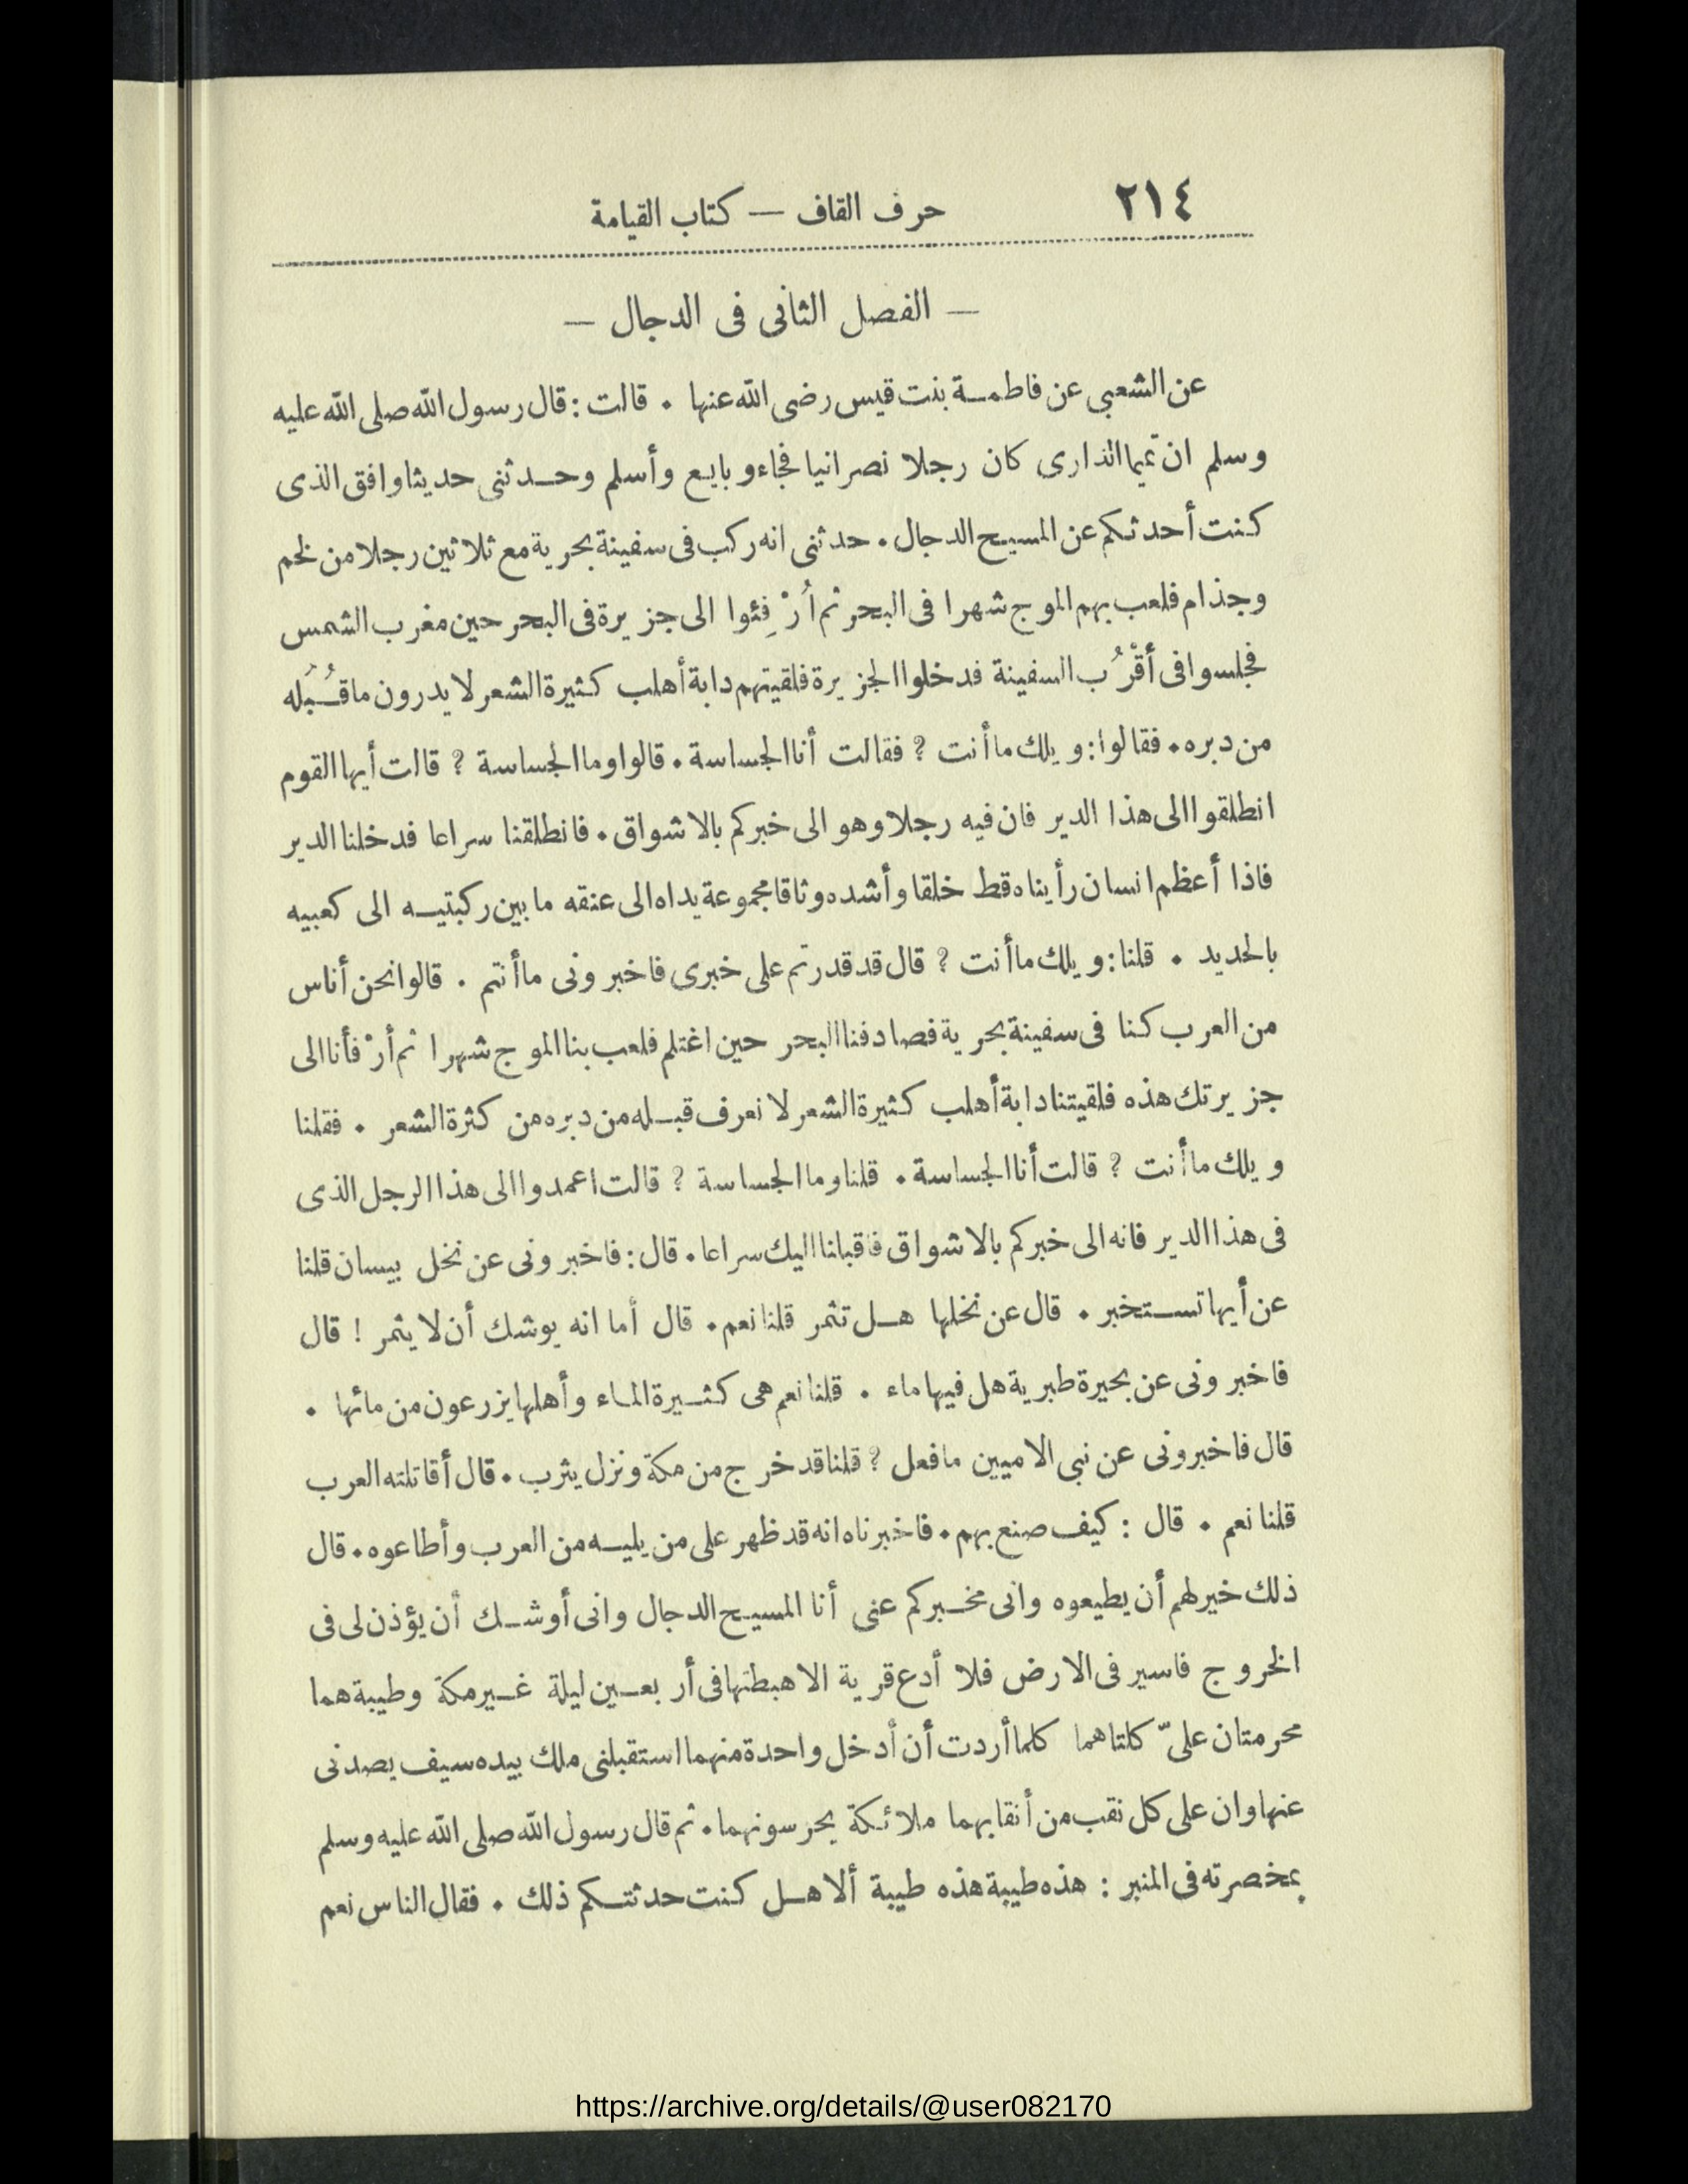 ٢١٤
حرف القاف — كتاب القيامة
— الفصل الثانى فى الدجال —
عن الشعبى عن فاطمة بنت قيس رضى الله عنها . قالت : قال رسول الله صلى الله عليه
وسلم ان تميما الدارى كان رجلا نصرانيا فجاء وبايع وأسلم وحدثنى حديثا وافق الذى
كنت أحدثكم عن المسيح الدجال . حدثنى انه ركب فى سفينة بحرية مع ثلاثين رجلا من لخم
وجذام فلعب بهم الموج شهرا فى البحر ثم اُرْفِئوا الى جزيرة فى البحر حين مغرب الشمس
فجلسوا فى أقْرُب السفينة فدخلوا الجزيرة فلقيتهم دابة أهلب كثيرة الشعر لا يدرون ما قُبُله
من دبره . فقالوا : ويلك ما أنت ؟ فقالت أنا الجساسة . قالوا وما الجساسة ؟ قالت أيها القوم
انطلقوا الى هذا الدير فان فيه رجلا وهو الى خبركم بالاشواق . فانطلقنا سراعا فدخلنا الدير
فاذا أعظم انسان رأيناه قط خلقا وأشده وثاقا مجموعة يداه الى عنقه ما بين ركبتيه الى كعبيه
بالحديد . قلنا : ويلك ما أنت ؟ قال قد قدرتم على خبرى فاخبرونى ما أنتم . قالوا نحن أناس
من العرب كنا فى سفينة بحرية فصادفنا البحر حين اغتلم فلعب بنا الموج شهرا ثم أرْفأنا الى
جزيرتك هذه فلقيتنا دابة أهلب كثيرة الشعر لا نعرف قبله من دبره من كثرة الشعر . فقلنا
ويلك ما أنت ؟ قالت أنا الجساسة . قلنا وما الجساسة ؟ قالت اعمدوا الى هذا الرجل الذى
فى هذا الدير فانه الى خبركم بالاشواق فاقبلنا اليك سراعا . قال : فاخبرونى عن نخل بيسان قلنا
عن أيها تستخبر . قال عن نخلها هل تثمر قلنا نعم . قال أما انه يوشك أن لا يثمر ! قال
فاخبرونى عن بحيرة طبرية هل فيها ماء . قلنا نعم هى كثيرة الماء وأهلها يزرعون من مائها .
قال فاخبرونى عن نبى الاميين ما فعل ؟ قلنا قد خرج من مكة ونزل يثرب . قال أقاتلته العرب
قلنا نعم . قال : كيف صنع بهم . فاخبرناه انه قد ظهر على من يليه من العرب وأطاعوه . قال
ذلك خير لهم أن يطيعوه وانى مخبركم عنى أنا المسيح الدجال وانى أوشك أن يؤذن لى فى
الخروج فاسير فى الارض فلا أدع قرية الا هبطتها فى أربعين ليلة غير مكة وطيبة هما
محرمتان علىّ كلتاهما كلما أردت أن أدخل واحدة منهما استقبلنى ملك بيده سيف يصدنى
عنها وان على كل نقب من أنقابهما ملائكة يحرسونهما . ثم قال رسول الله صلى الله عليه وسلم
بمخصرته فى المنبر : هذه طيبة هذه طيبة ألا هل كنت حدثتكم ذلك . فقال الناس نعم
https://archive.org/details/@user082170